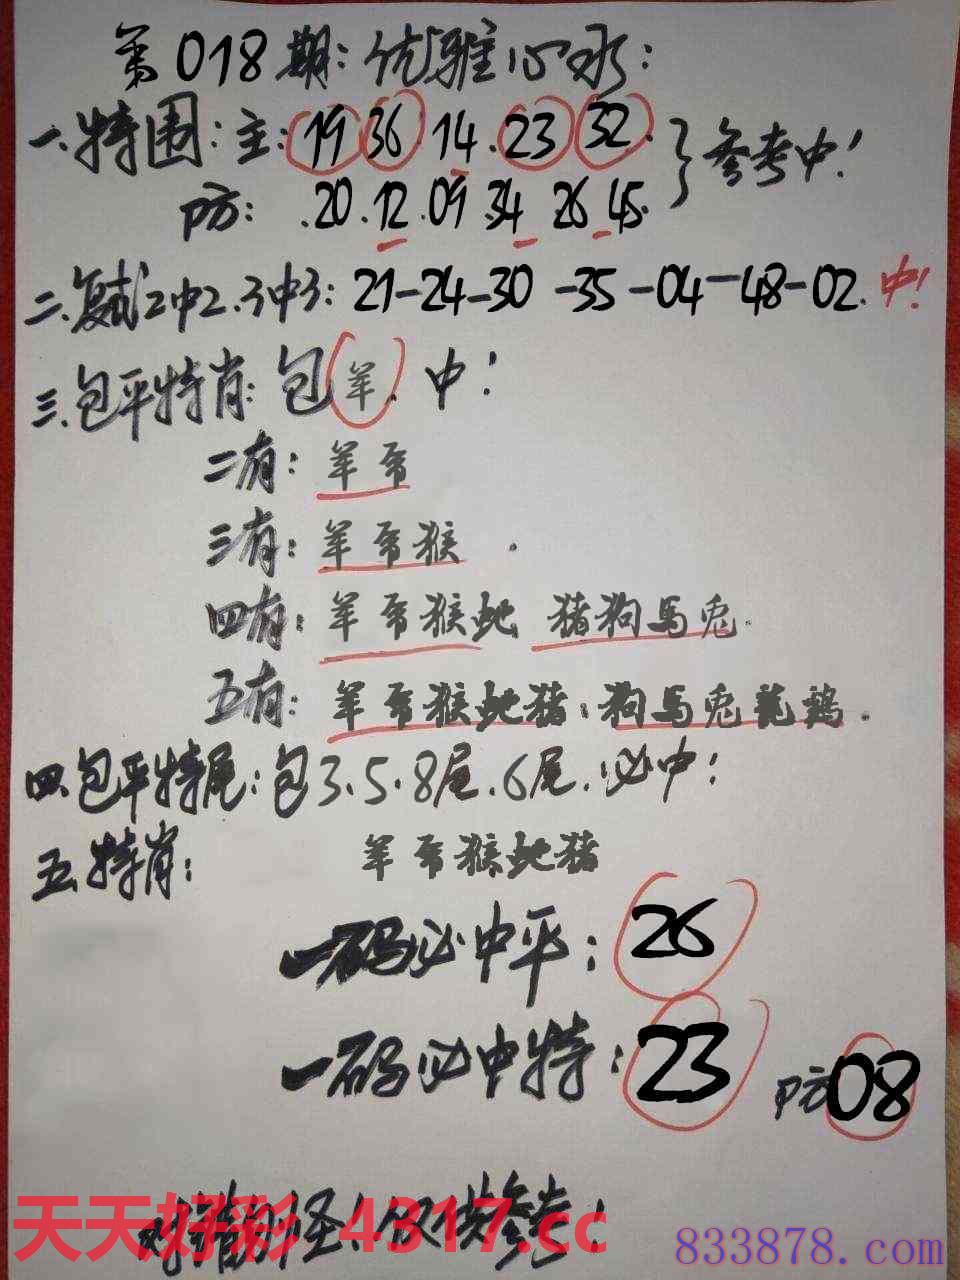 第018期:优雅心水:
一.特围:主:19 36.14.23 32.}参考中!
防:.20.12.09.34 26 45.
二.复试2中2.3中3:21-24-30-35-04-48-02.中!
三.包平特肖:包羊.中!
二有:羊帝
三有:羊帝猴.
四有:羊帝猴蛇 猪狗马兔.
五有:羊帝猴蛇猪.狗马兔龙鸡.
四.包平特尾:包3.5.8尾.6尾.必中!
五.特肖:羊帝猴蛇猪
一码必中平:26
一码必中特:23 防08
天天好彩 4317.cc
仅供参考!
833878.com